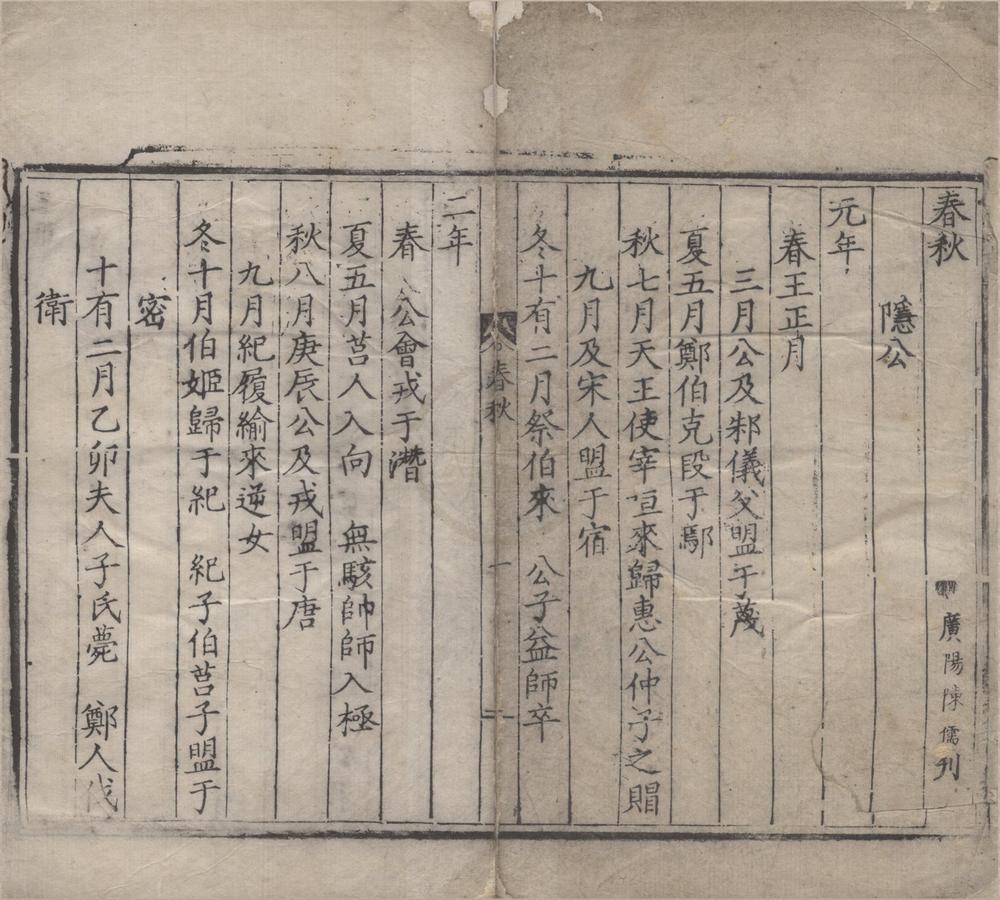 春秋
廣陽陳儒刊
隱公
元年
春王正月
三月公及邾儀父盟于蔑
夏五月鄭伯克段于鄢
秋七月天王使宰咺來歸惠公仲子之賵
九月及宋人盟于宿
冬十有二月祭伯來 公子益師卒
春秋
一
二年
春 公會戎于潛
夏五月莒人入向 無駭帥師入極
秋八月庚辰公及戎盟于唐
九月紀履緰來逆女
冬十月伯姬歸于紀 紀子伯莒子盟于
密
十有二月乙卯夫人子氏薨 鄭人伐
衛